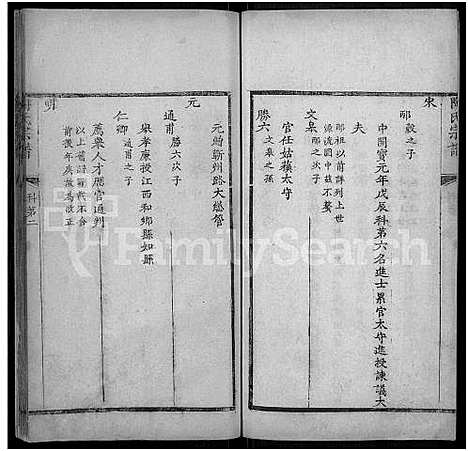 陳氏宗譜
宋
邴 毅之子
中開寶元年戊辰科第六名進士累官太守進授諫議大
夫
邴祖以前詳列上世
源流圖中茲不贅
文臯 邴之次子
官任姑蘇太守
勝六 文臯之孫
元
元時蘄州路大總管
通甫 勝六次子
舉孝廉授江西和鄉縣知縣
仁卿 通甫之子
薦舉人才歷官通判
以上舊譜朝載不合
前後年庚故為改正
明
科第二
FamilySearch